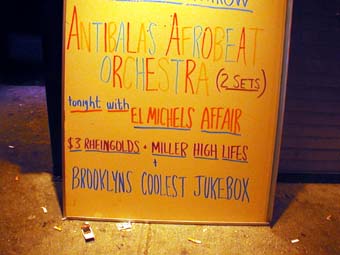 ANTIBALAS AFROBEAT
ORCHESTRA (2 SETS)
tonight with
EL MICHELS AFFAIR
$3 RHEINGOLDS + MILLER HIGH LIFES
+
BROOKLYNS COOLEST JUKEBOX